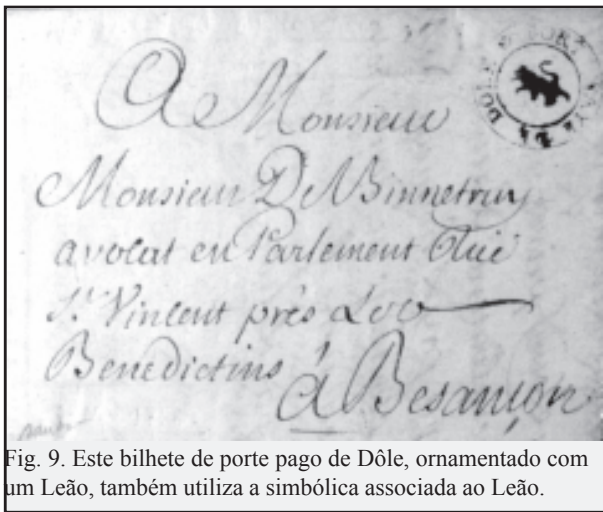 PORT PAYÉ DE DÔLE
A Monsieur
Monsieur De Binnetruy
avocat en Parlement Rüe
St. Vincent près Les
Benedictins
à Besançon
Fig. 9. Este bilhete de porte pago de Dôle, ornamentado com
um Leão, também utiliza a simbólica associada ao Leão.